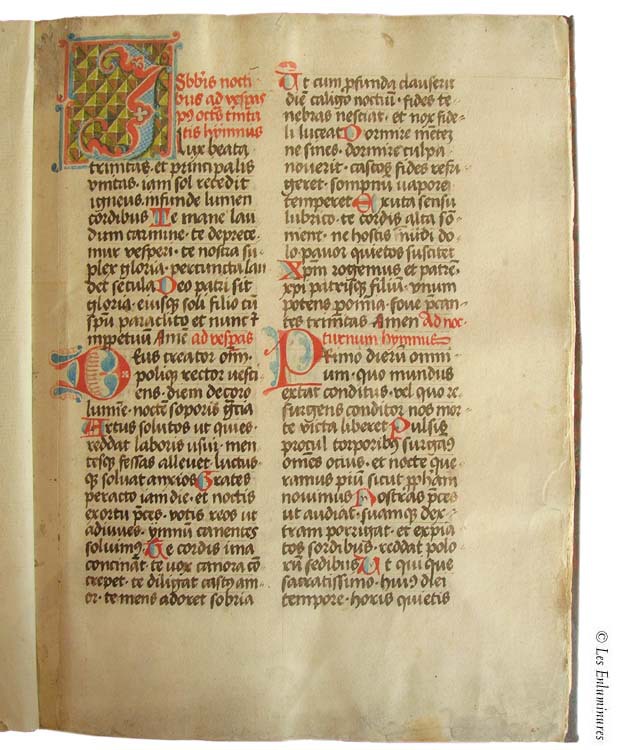 Sbb̄is nocti
bus ad vesp̄as
p9 oct̄s trinta
tis hymnus
O lux beata
trinitas · et principalis
vnitas · iam sol recedit
igneus · infunde lumen
cordibus Te mane lau
dum carmine · te deprece
mur vesperi · te nostra su
plex gloria · per cuncta lau
det secula Deo patri sit
gloria · eiusq̄ soli filio cū
sp̄u paraclito et nunc ⁊
imp̄petuū Amē ad vesp̄as
DEus creator om̄i
polique rector vesti
ens · diem decoro
lumīe · noctē soporis gr̄cia
Artus solutos ut quies ·
reddat laboris usui · men
tesq̄ fessas allevet luctus
q̄ soluat anxios Grates
peracto iam die · et noctis
exortu p̄ces · votis reos ut
adiuves · ymnū canentes
soluim9 Te cordis ima
concināt · te vox canora cō
crepet · te diligat cast9 am
or · te mens adoret sobria
Ut cum p̄funda clauserit
diē caligo noctiū · fides te
nebras nesciat · et nox fide
li luceat Dormire mētē
ne sines · dormire culpa
noverit · castos fides refri
geret · sompnii vapore
temperet Exuta sensu
lubrico · te cordis alta sō
ment · ne hostis īuidi do
lo pavor quietos suscitet
Xp̄m rogemus et patrē ·
xp̄i patrisque filiū · vnum
potens p̄ om̄ia · fove p̄can
tes trinitas Amen Ad noc
turnum hymnus
PRimo dierū omni
um · quo mundus
extat conditus · vel quo re
surgens conditor nos mor
te victa liberet Pulsis
procul torporibus surgam9
om̄es ocius · et nocte que
ramus piū sicut pp̄ham
novimus Nostras p̄ces
ut audiat · suamque dex
tram porrigat · et expia
tos sordibus · reddat polo
rū sedibus Ut qui que
sacratissimo · hui9 diei
tempore · horis quietis
© Les Enluminures